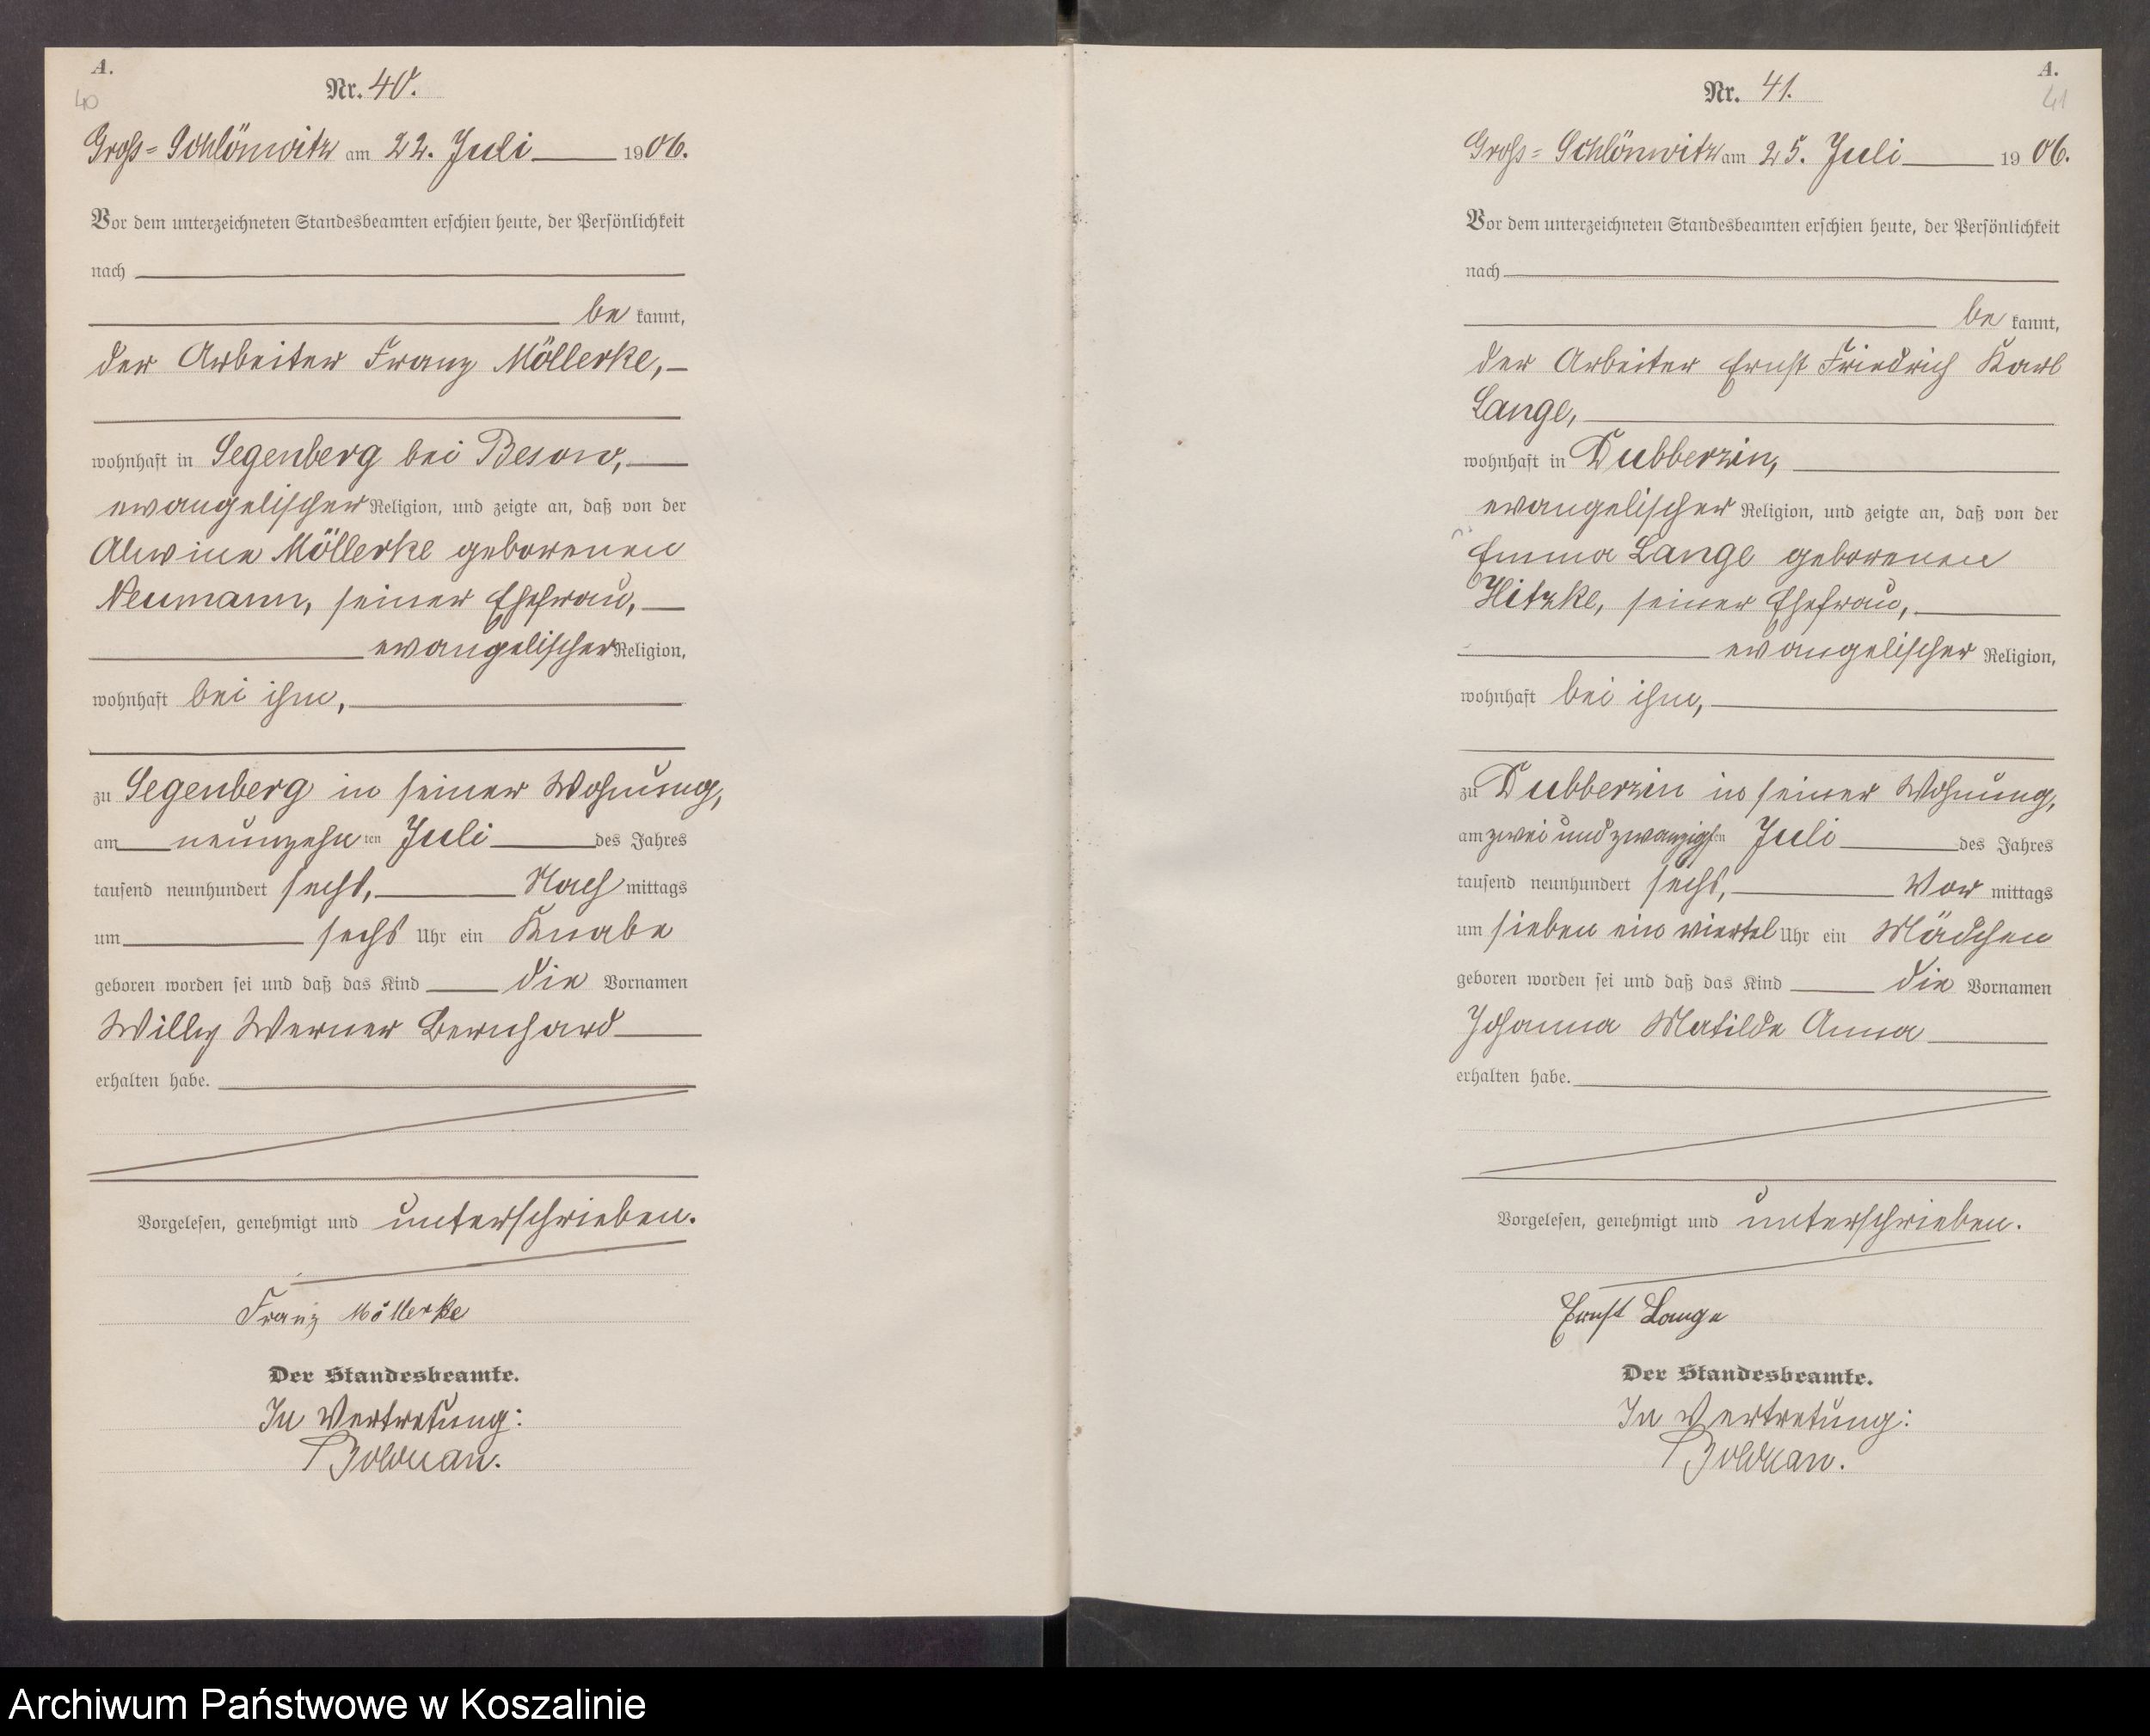 A.
40
Nr. 40.
Groß-Schlönwitz am 22. Juli 1906.
Vor dem unterzeichneten Standesbeamten erschien heute, der Persönlichkeit
nach
be kannt,
der Arbeiter Franz Möllerke,
wohnhaft in Segenberg bei Besow,
evangelischer Religion, und zeigte an, daß von der
Alwine Möllerke geborenen
Neumann, seiner Ehefrau,
evangelischer Religion,
wohnhaft bei ihm,
zu Segenberg in seiner Wohnung,
am neunzehn ten Juli des Jahres
tausend neunhundert sechs, Nach mittags
um sechs Uhr ein Knabe
geboren worden sei und daß das Kind die Vornamen
Willy Werner Bernhard
erhalten habe.
Vorgelesen, genehmigt und unterschrieben.
Franz Möllerke
Der Standesbeamte.
In Vertretung:
Bolduan.
A.
41
Nr. 41.
Groß-Schlönwitz am 25. Juli 1906.
Vor dem unterzeichneten Standesbeamten erschien heute, der Persönlichkeit
nach
be kannt,
der Arbeiter Ernst Friedrich Karl
Lange,
wohnhaft in Dubberzin,
evangelischer Religion, und zeigte an, daß von der
Emma Lange geborenen
Hitzke, seiner Ehefrau,
evangelischer Religion,
wohnhaft bei ihm,
zu Dubberzin in seiner Wohnung,
am zwei und zwanzigsten Juli des Jahres
tausend neunhundert sechs, Vor mittags
um sieben ein viertel Uhr ein Mädchen
geboren worden sei und daß das Kind die Vornamen
Johanna Matilde Anna
erhalten habe.
Vorgelesen, genehmigt und unterschrieben.
Ernst Lange
Der Standesbeamte.
In Vertretung:
Bolduan.
Archiwum Państwowe w Koszalinie